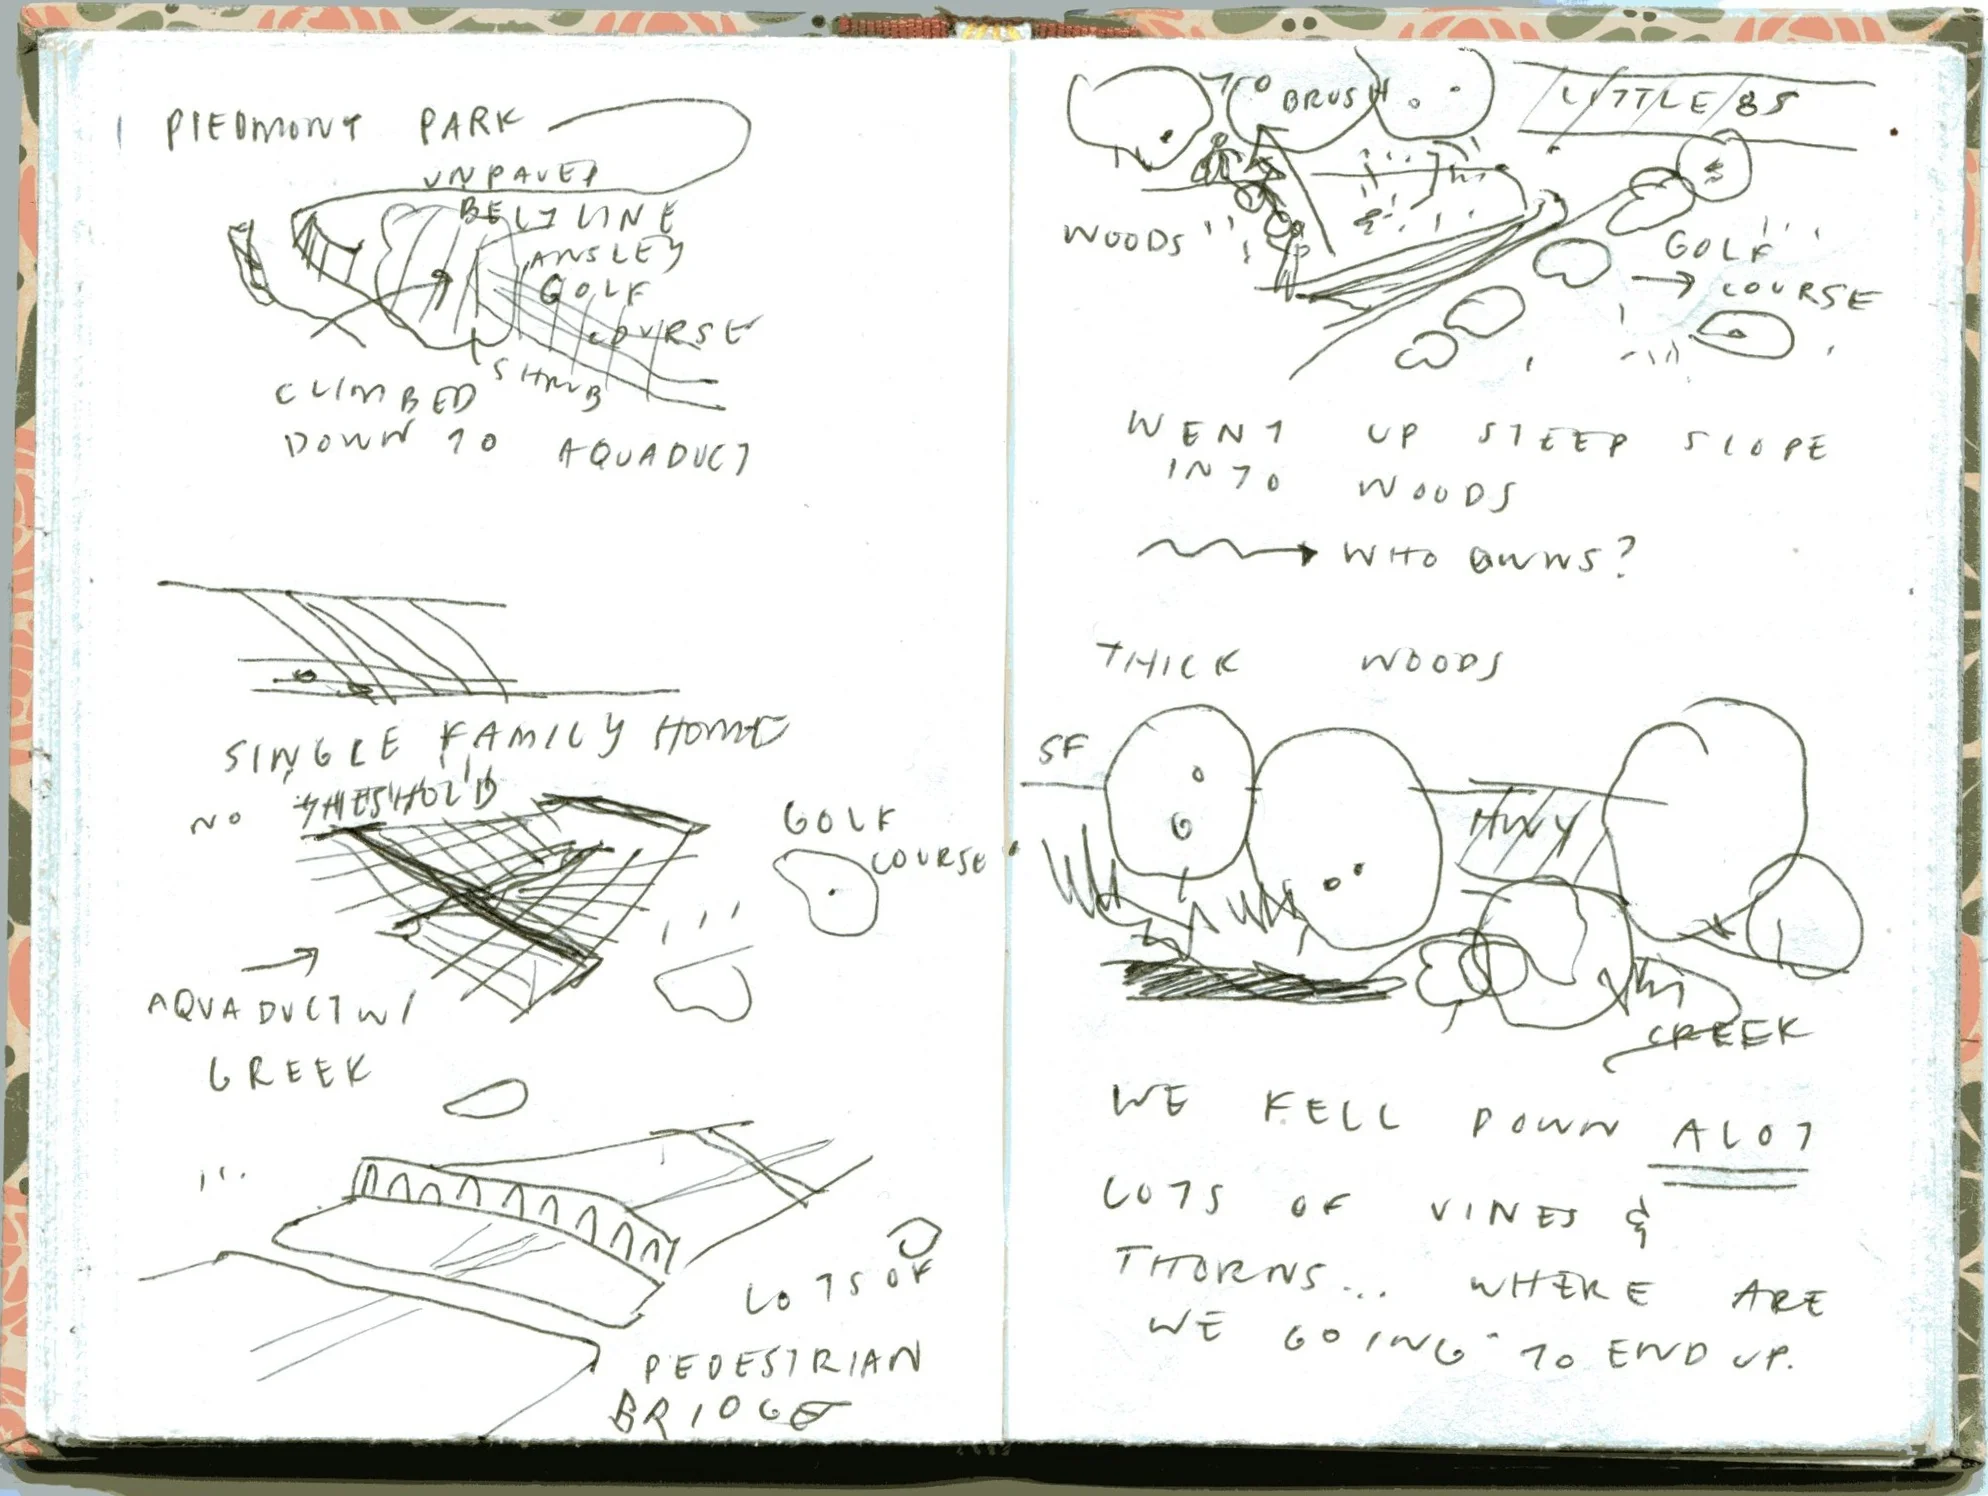 PIEDMONT PARK
UNPAVED
BELTLINE
ANSLEY
GOLF
COURSE
SHRUB
CLIMBED
DOWN TO AQUADUCT
SINGLE FAMILY HOME
NO THESHOLD
GOLF
COURSE
AQUADUCT W/
CREEK
LOTS OF
PEDESTRIAN
BRIDGE
TO BRUSH
LITTLE 85
WOODS
GOLF
COURSE
WENT UP STEEP SLOPE
INTO WOODS
WHO OWNS?
THICK WOODS
SF
HWY
CREEK
WE FELL DOWN ALOT
LOTS OF VINES &
THORNS... WHERE ARE
WE GOING TO END UP.